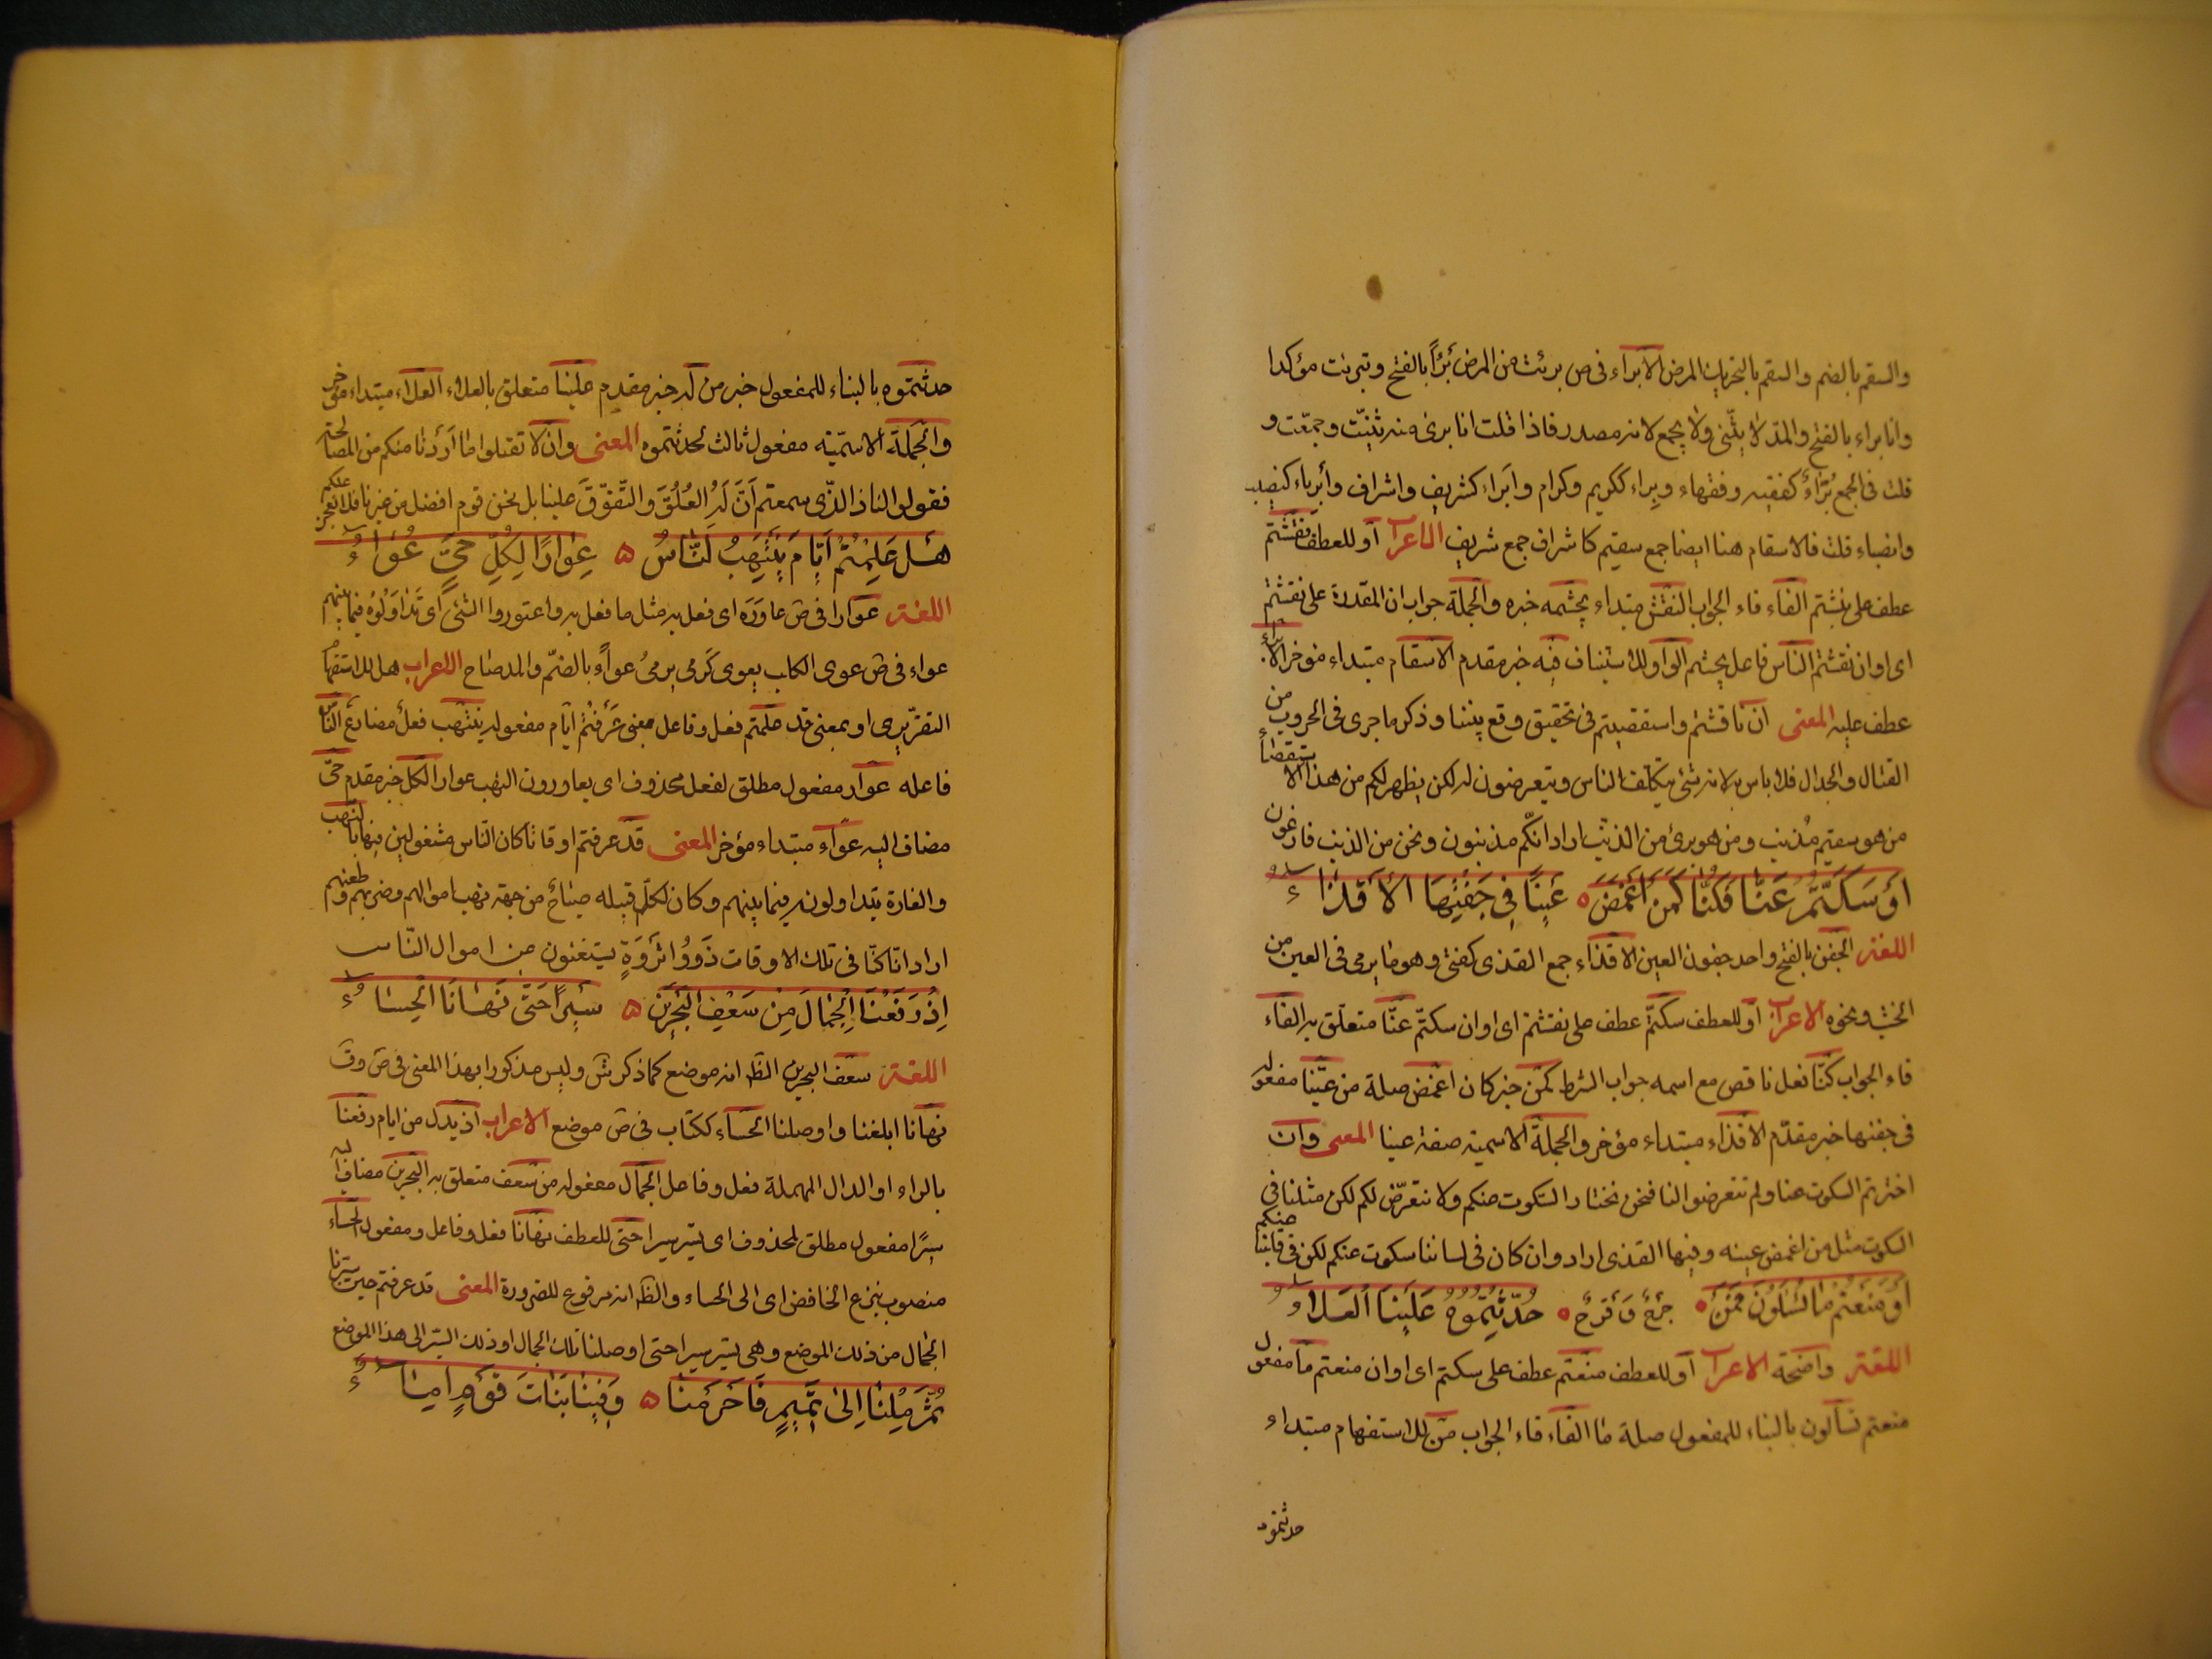 والسقم بالضم والسقم بالتحريك المرض الابراء فى ص برئت من المرض بُرْأً بالفتح وتبرئت مؤكدا
وانا براء بالفتح والمدّ لا يثّنى ولا يجمع لانه مصدر فاذا قلت انا برئ منه ثنيّت وجمعّت و
قلت فى الجمع بُرَّاءُ كفقيه وفقهاء وبِراء ككريم وكرام وابراء كشريف واشراف وأبرياء كنصيب
وانصباء قلت فالاسقام هنا ايضا جمع سقيم كاشراف جمع شريف الاعراب او للعطف نقشتم
عطف على نبشتم الفاء فاء الجواب النقش مبتداء يجشمه خبره والجملة جواب ان المقدرة على نقشتم
اى او ان نقشتم الناس فاعل يجشم الواو للاستئناف فيه خبر مقدم الاسقام مبتداء مؤخر الابراء
عطف عليه المعنى ان ناقشتم واستقصيتم فى تحقيق وقع بيننا وذكر ما جرى فى الحروب من
القتال والجدال فلا باس به لانه شئ يتكلف الناس ويتعرضون له لكن يظهر لكم من هذا الاستقصاء
من هو سقيم مُذنب ومن هو برئ من الذنب اراد انكّم مذنبون ونحن من الذنب فارغون
اَوْ سَكَتُّمْ عَنَّا فَكُنَّا كَمَنْ اَغْمَضَ ه عَيْنًا فِى جَفْنِهَا الْاَقْذَاءُ
اللغة الجفن بالفتح واحد جفون العين الاقذاء جمع القذى كفتى وهو ما يرمى فى العين من
الخشب ونحوه الاعراب او للعطف سكتمّ عطف على نقشتم اى او ان سكتمّ عنّا متعلّق به الفاء
فاء الجواب كنّا فعل ناقص مع اسمه جواب الشرط كمن خبر كان اغمض صلة من عيّنا مفعوله
فى جفنها خبر مقدّم الاقذاء مبتداء مؤخر والجملة الاسمية صفة عينا المعنى وان
اخترتم السكوت عنا ولم تتعرضوا لنا فنحن نختار السّكوت عنكم ولا نتعرّض لكم لكن مثلنا فى
السكوت مثل من اغمض عينه وفيها القذى اراد وان كان فى لساننا سكوت عنكم لكن فى قلبنا منكم
اَوْ مَنَعْتُمْ مَا تُسْئَلُونَ فَمَنْ ه حُدِّثْتُمُوهُ عَلَيْنَا الْعَلَاءُ
اللغة واضحة الاعراب او للعطف منعتم عطف على سكتم اى او ان منعتم ما مفعول
منعتم تسألون بالبناء للمفعول صلة ما الفاء فاء الجواب من للاستفهام مبتداء
حدثتموه
حدثتموه بالبناء للمفعول خبر من له خبر مقدم علينا متعلق بالعلاء العلاء مبتداء مؤخر
والجملة الاسمّية مفعول ثالث لحدثتموه المعنى وان لا تقبلوا ما اردنا منكم من المصالحة
فقولوا لنا ذا الذّى سمعتم اَنّ لَهُ العُلُوَّ والتّفوّقَ علينا بل نحن قوم افضل من غيرنا فلا نعجز عنكم
هَلْ عَلِمْتُمْ اَيَّامَ يُنْتَهَبُ النَّاسُ ه غِوَارًا لِكُلِّ حَىٍّ عُوَاءُ
اللغة عوارا فى ص عاوَرَه اى فعل به مثل ما فعل به واعتوروا الشئ اى تَداوَلُوْه فيما بينهم
عواء فى ص عوى الكلب يعوى كَرمى يرمى عواءً بالضمّ والمد صاح الاعراب هل للاستفهام
التقرّيرى او بمعنى قد علمتم فعل وفاعل بمعنى عَرَفْتُم ايّام مفعوله ينتهب فعل مضارع النّاس
فاعله عوار مفعول مطلق لفعل محذوف اى يعاورون النهب عوار الكل خبر مقدم حىّ
مضاف اليه عواء مبتداء مؤخر المعنى قد عرفتم اوقاتا كان النّاس مشغولين فيها بالنّهب
والغارة يتداولونه فيما بينهم وكان لكلّ قبيله صياحٌ من جهة نهب اموالهم وضربهم وطعنهم
اراد انا كنّا فى تلك الاوقات ذَوُوا ثَرْوَةٍ يستغنون من اموال النّاس
اِذْ رَفَعْنَا الْجِمَالَ مِنْ سَعَفِ الْبَحْرَيْنِ ه سَيْرًا حَتَّى نَهَانَا الْحِسَاءُ
اللغة سعف البحرين الظّ انه موضع كما ذكر ش وليس مذكورا بهذا المعنى فى ص وق
نهانا ابلغنا واوصلنا الحساء ككتاب فى ص موضع الاعراب اذ بدل من ايام رفعنا
بالراء او الدال المهملة فعل وفاعل الجمال مفعوله من سعف متعلق به البحرين مضاف اليه
سيرًا مفعول مطلق لمحذوف اى يسير سيرا حتى للعطف نهانا فعل وفاعل ومفعول الحساء
منصوب بنزع الخافض اى الى الحساء والظّ انه مرفوع للضرورة المعنى قد عرفتم حين سيّرنا
الجمال من ذلك الموضع وهى يسير سيرا حتى اوصلنا تلك الجمال او ذلك السّير الى هذا الموضع
ثُمَّ مِلْنَا اِلَى تَمِيمٍ فَاَحْرَمْنَا ه وَفِينَا بَنَاتُ قَوْمٍ اِمَاءُ